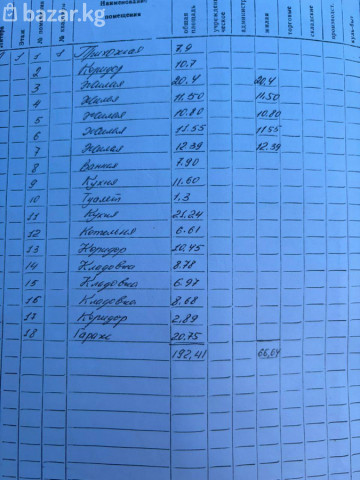 bazar.kg
Этаж
Наименование
помещения
общая
площадь
жилая
торговые
складские
1 1 1 Прихожая 7.9
2 Коридор 10.7
3 Жилая 20.4 20.4
4 Жилая 11.50 11.50
5 Жилая 10.80 10.80
6 Жилая 11.55 11.55
7 Жилая 12.39 12.39
8 Ванная 7.90
9 Кухня 11.60
10 Туалет 1.3
11 Кухня 21.24
12 Котельня 6.61
13 Коридор 10.45
14 Кладовка 8.78
15 Кладовка 6.97
16 Кладовка 8.68
17 Коридор 2.89
18 Гараж 20.75
192,41 66,64